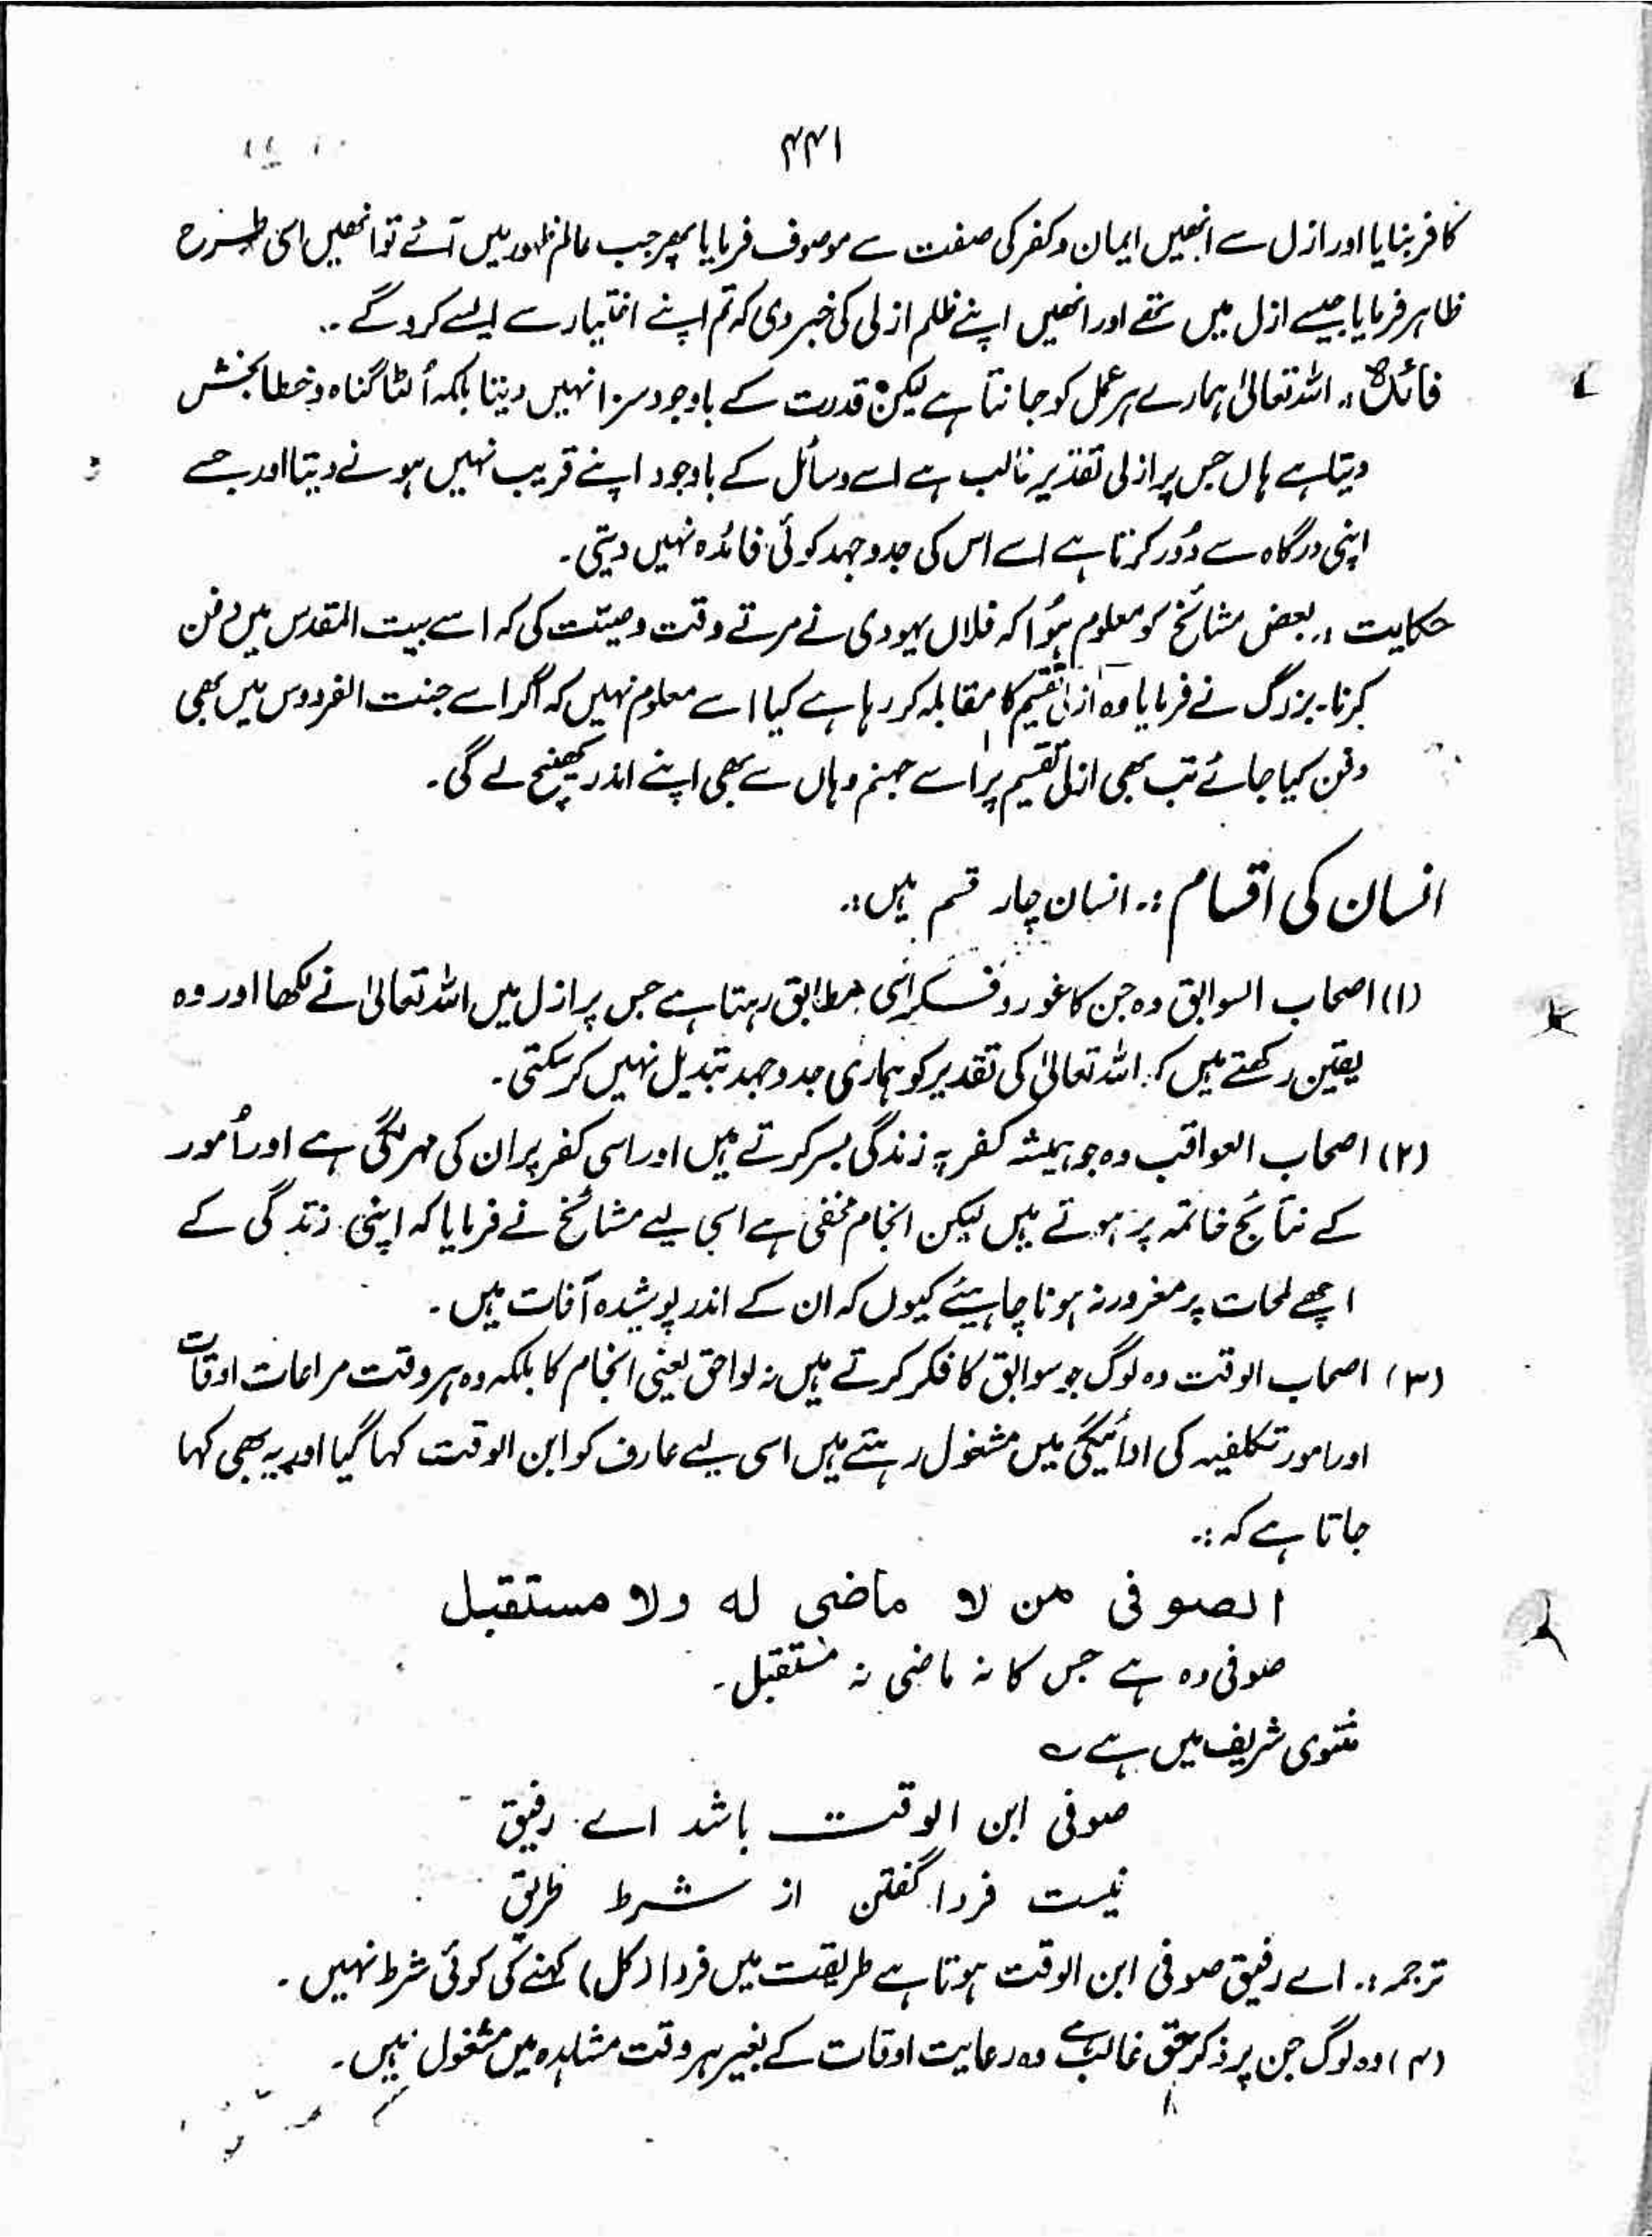 ۴۴۱
کافر بنایا اور ازل سے انھیں ایمان و کفر کی صفت سے موصوف فرمایا پھر جب عالم ظہور میں آئے تو انھیں اسی طرح
ظاہر فرمایا جیسے ازل میں تھے اور انھیں اپنے ظلم ازلی کی خبر دی کہ تم اپنے اختیار سے ایسے کرو گے ..
فائدہ :. اللہ تعالیٰ ہمارے ہر عمل کو جانتا ہے لیکن قدرت کے باوجود سزا نہیں دیتا بلکہ اُلٹا گناہ و خطا بخش
دیتا ہے ہاں جس پر ازلی تقدیر غالب ہے اسے وسائل کے باوجود اپنے قریب نہیں ہونے دیتا اور جسے
اپنی درگاہ سے دُور کرتا ہے اسے اس کی جدوجہد کوئی فائدہ نہیں دیتی۔
حکایت :. بعض مشائخ کو معلوم ہُوا کہ فلاں یہودی نے مرتے وقت وصیّت کی کہ اسے بیت المقدس میں دفن
کرنا۔ بزرگ نے فرمایا وہ ازلی تقسیم کا مقابلہ کر رہا ہے کیا اسے معلوم نہیں کہ اگر اسے جنت الفردوس میں بھی
دفن کیا جائے تب بھی ازلی تقسیم پر اسے جہنم وہاں سے بھی اپنے اندر کھینچ لے گی۔
انسان کی اقسام :. انسان چار قسم ہیں :.
(۱) اصحاب السوابق وہ جن کا غور و فکر اسی مطابق رہتا ہے جس پر ازل میں اللہ تعالیٰ نے لکھا اور وہ
یقین رکھتے ہیں کہ اللہ تعالیٰ کی تقدیر کو ہماری جدوجہد تبدیل نہیں کر سکتی۔
(۲) اصحاب العواقب وہ جو ہمیشہ کفر پہ زندگی بسر کرتے ہیں اور اسی کفر پر ان کی مہر لگی ہے اور اُمور
کے نتائج خاتمہ پر ہوتے ہیں لیکن انجام مخفی ہے اسی لیے مشائخ نے فرمایا کہ اپنی زندگی کے
اچھے لمحات پر مغرور نہ ہونا چاہیئے کیوں کہ ان کے اندر پوشیدہ آفات ہیں۔
(۳) اصحاب الوقت وہ لوگ جو سوابق کا فکر کرتے ہیں نہ لواحق یعنی انجام کا بلکہ وہ ہر وقت مراعات اوقات
اور امور تکلفیہ کی ادائیگی میں مشغول رہتے ہیں اسی لیے عارف کو ابن الوقت کہا گیا اور یہ بھی کہا
جاتا ہے کہ :.
الصوفی من لا ماضی له ولا مستقبل
صوفی وہ ہے جس کا نہ ماضی نہ مستقبل۔
مثنوی شریف میں ہے ؎
صوفی ابن الوقت باشد اے رفیق
نیست فردا گفتن از شرط طریق
ترجمہ :. اے رفیق صوفی ابن الوقت ہوتا ہے طریقت میں فردا (کل) کہنے کی کوئی شرط نہیں۔
(۴) وہ لوگ جن پر ذکر حق غالب ہے وہ رعایت اوقات کے بغیر ہر وقت مشاہدہ میں مشغول ہیں۔